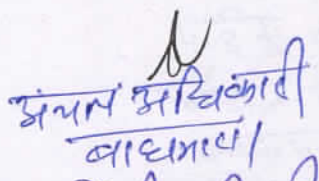 अंचल अधिकारी
बाघमारा।